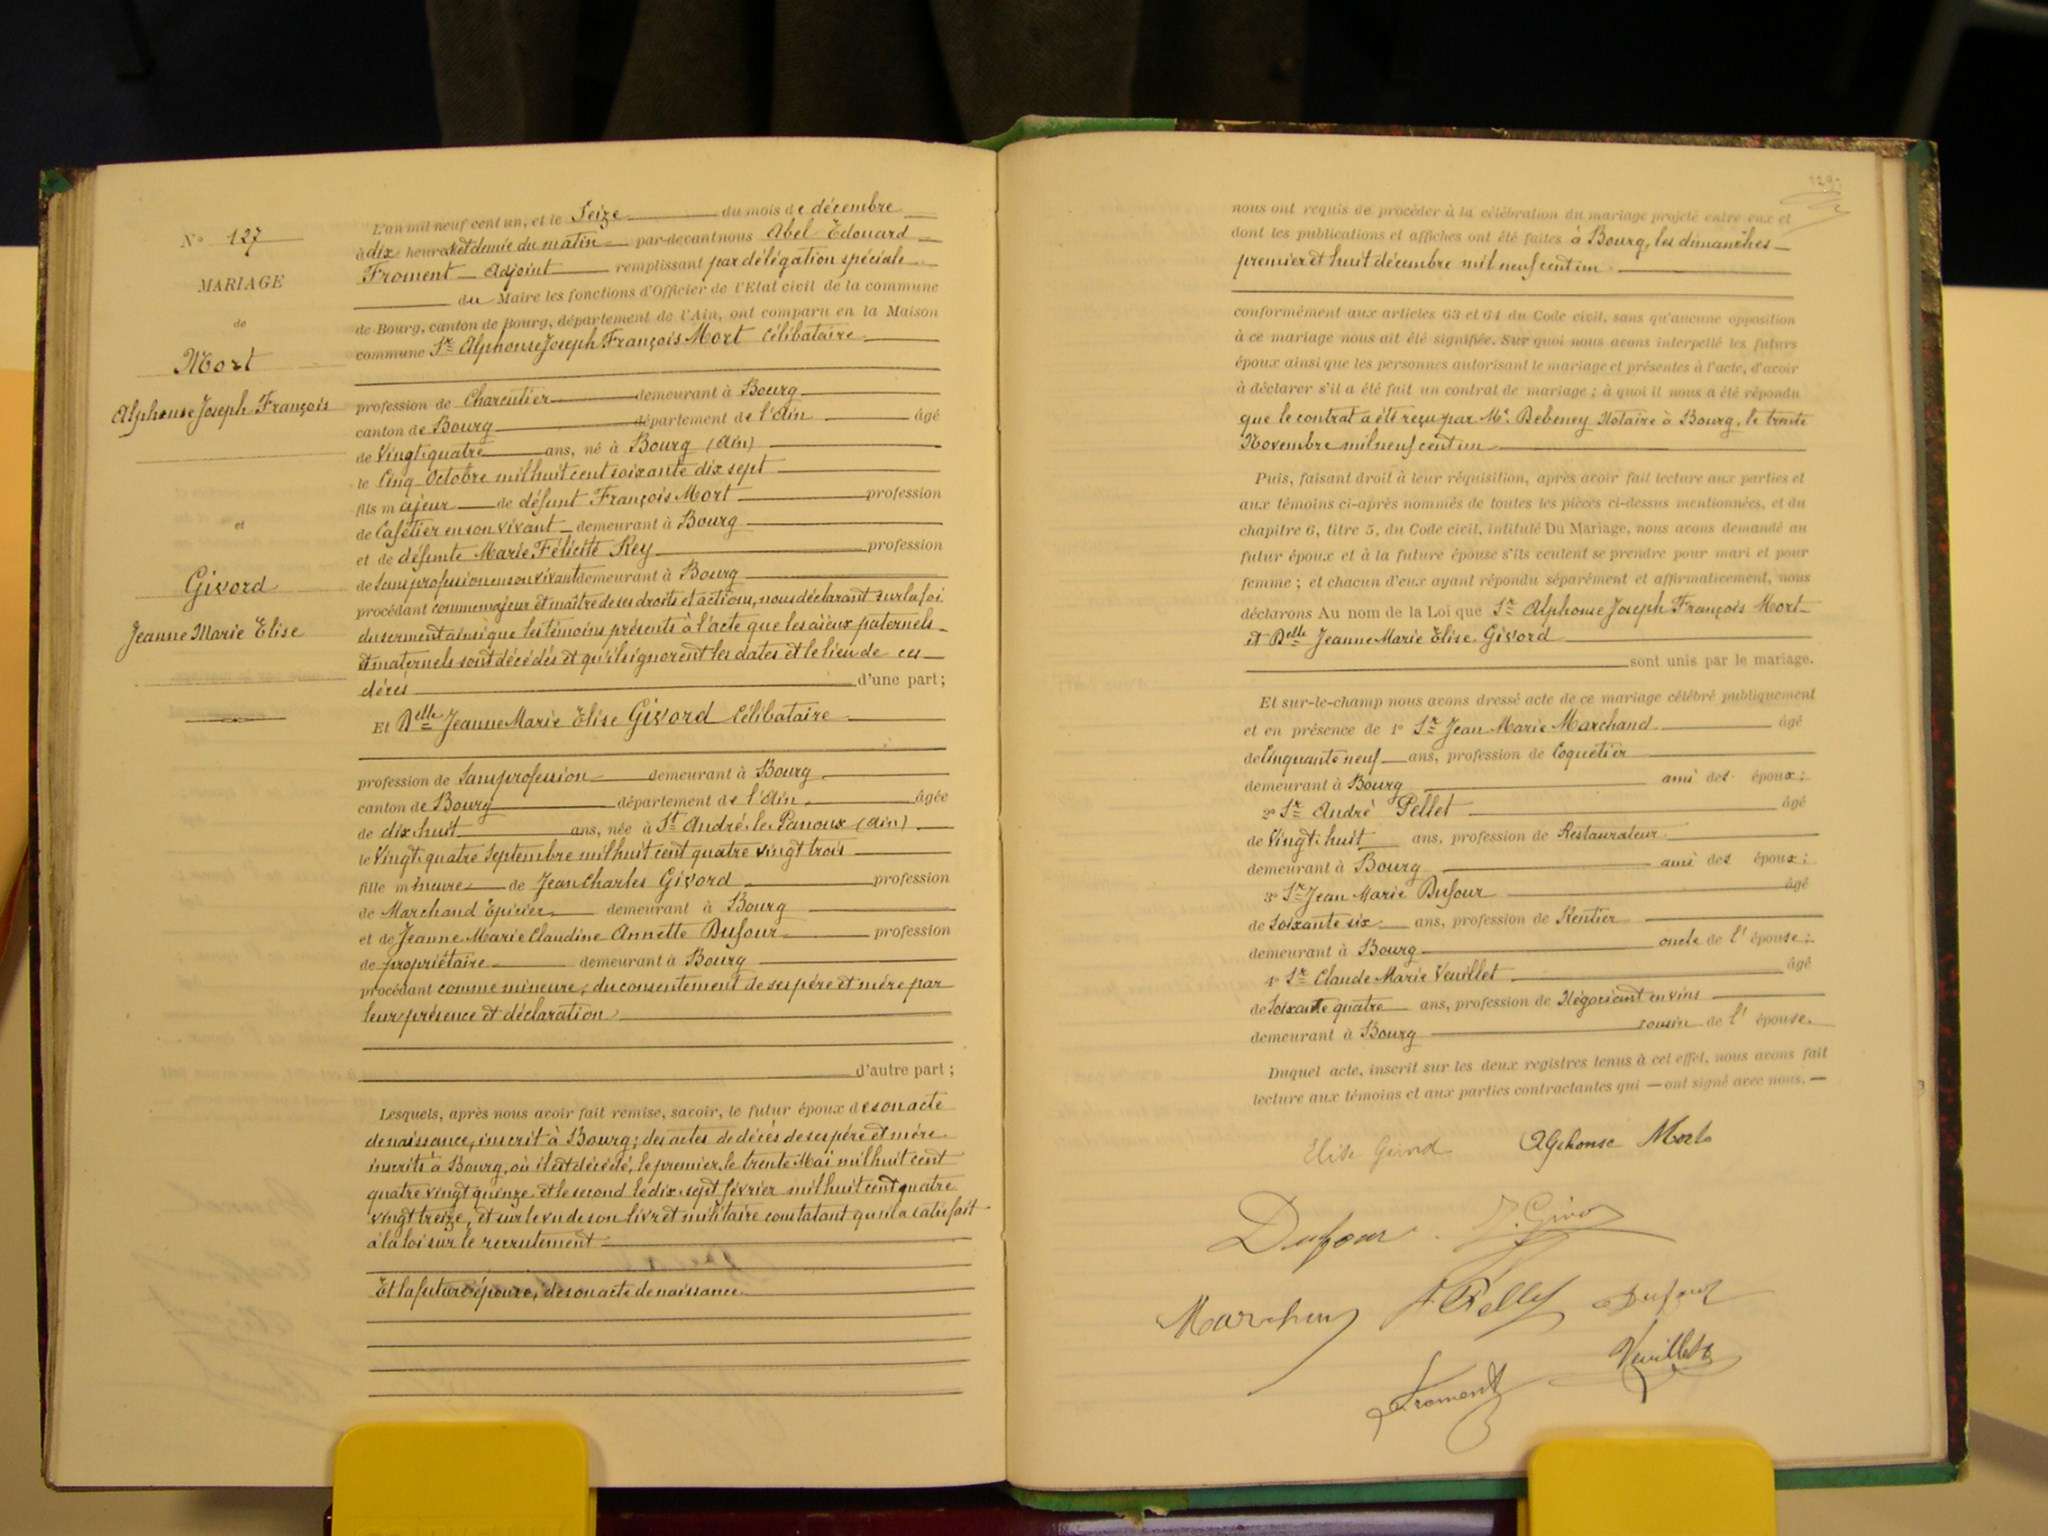 N° 127
MARIAGE
de
Mort
Alphonse Joseph François
et
Givord
Jeanne Marie Elise
L'an mil neuf cent un, et le Seize du mois de décembre
à dix heures et demie du matin par-devant nous Abel Edouard
Froment Adjoint remplissant par délégation spéciale
du Maire les fonctions d'Officier de l'Etat civil de la commune
de Bourg, canton de Bourg, département de l'Ain, ont comparu en la Maison
commune Sr Alphonse Joseph François Mort Célibataire
profession de Charcutier demeurant à Bourg
canton de Bourg département de l'Ain âgé
de Vingt quatre ans, né à Bourg (Ain)
le Cinq Octobre mil huit cent soixante dix sept
fils majeur de défunt François Mort profession
de Cafétier en son vivant demeurant à Bourg
et de défunte Marie Félicité Rey profession
de Sans profession en son vivant demeurant à Bourg
procédant comme majeur et maître de ses droits et actions, nous déclarant sur la foi
du serment ainsi que les témoins présents à l'acte que les aïeux paternels
et maternels sont décédés et qu'ils ignorent les dates et le lieu de ces
décès d'une part;
Et Delle Jeanne Marie Elise Givord Célibataire
profession de Sans profession demeurant à Bourg
canton de Bourg département de l'Ain âgée
de dix huit ans, née à St André le Panoux (Ain)
le Vingt quatre Septembre mil huit cent quatre vingt trois
fille mineure de Jean Charles Givord profession
de Marchand Epicier demeurant à Bourg
et de Jeanne Marie Claudine Annette Dufour profession
de propriétaire demeurant à Bourg
procédant comme mineure, du consentement de ses père et mère par
leur présence et déclaration
d'autre part;
Lesquels, après nous avoir fait remise, savoir, le futur époux de son acte
de naissance, inscrit à Bourg; des actes de décès de ses père et mère
inscrits à Bourg, où il est décédé, le premier, le trente Mai mil huit cent
quatre vingt quinze et le second le dix sept février mil huit cent quatre
vingt treize, et sur le vu de son livret militaire constatant qu'il a satisfait
à la loi sur le recrutement
Et la future épouse, de son acte de naissance
nous ont requis de procéder à la célébration du mariage projeté entre eux et
dont les publications et affiches ont été faites à Bourg, les dimanches
premier et huit décembre mil neuf cent un
conformément aux articles 63 et 64 du Code civil, sans qu'aucune opposition
à ce mariage nous ait été signifiée. Sur quoi nous avons interpellé les futurs
époux ainsi que les personnes autorisant le mariage et présentes à l'acte, d'avoir
à déclarer s'il a été fait un contrat de mariage; à quoi il nous a été répondu
que le contrat a été reçu par Me Debeney Notaire à Bourg, le trente
Novembre mil neuf cent un
Puis, faisant droit à leur réquisition, après avoir fait lecture aux parties et
aux témoins ci-après nommés de toutes les pièces ci-dessus mentionnées, et du
chapitre 6, titre 5, du Code civil, intitulé Du Mariage, nous avons demandé au
futur époux et à la future épouse s'ils veulent se prendre pour mari et pour
femme; et chacun d'eux ayant répondu séparément et affirmativement, nous
déclarons Au nom de la Loi que Sr Alphonse Joseph François Mort
et Delle Jeanne Marie Elise Givord
sont unis par le mariage.
Et sur-le-champ nous avons dressé acte de ce mariage célébré publiquement
et en présence de 1° Sr Jean Marie Marchand âgé
de Cinquante neuf ans, profession de Coquetier
demeurant à Bourg ami des époux;
2° Sr André Pellet âgé
de Vingt huit ans, profession de Restaurateur
demeurant à Bourg ami des époux;
3° Sr Jean Marie Dufour âgé
de Soixante six ans, profession de Rentier
demeurant à Bourg oncle de l'épouse;
4° Sr Claude Marie Veuillet âgé
de Soixante quatre ans, profession de Négociant en vins
demeurant à Bourg cousin de l'épouse.
Duquel acte, inscrit sur les deux registres tenus à cet effet, nous avons fait
lecture aux témoins et aux parties contractantes qui ont signé avec nous.
Elise Givord Alphonse Mort
Dufour J. Givord
Marchand A Pellet Dufour
Froment Veuillet